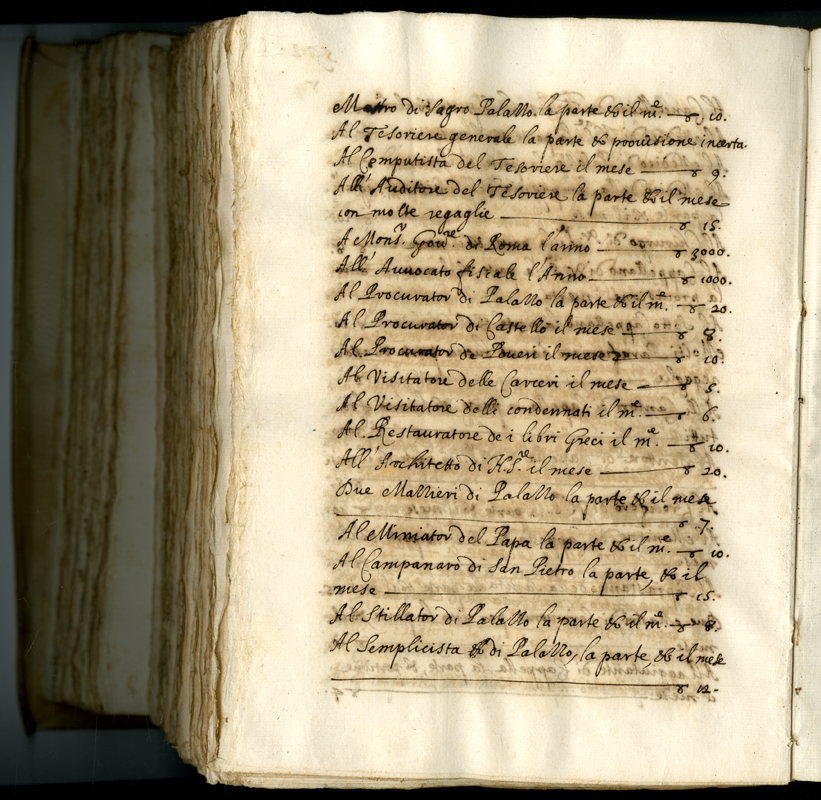 Mastro di Sagro Palazzo la parte & il m.e — ꝟ 10.
Al Tesoriere generale la parte & provisione incerta.
Al Computista del Tesoriere il mese — ꝟ 9.
All' Auditore del Tesoriere la parte & il mese
con molte regaglie — ꝟ 15.
A Mons.r Gov.re di Roma l'anno — ꝟ 3000.
All' Auuocato fiscale l'Anno — ꝟ 1000.
Al Procurator di Palazzo la parte & il m.e — ꝟ 20.
Al Procurator di Castello il mese — ꝟ 8.
Al Procurator de Poueri il mese — ꝟ 10.
Al Visitatore delle Carceri il mese — ꝟ 5.
Al Visitatore delli condennati il m.e — ꝟ 6.
Al Restauratore de i libri Greci il m.e — ꝟ 10.
All' Architetto di N.S.re il mese — ꝟ 20.
Due Mazzieri di Palazzo la parte & il mese
— ꝟ 7.
Al Miniator del Papa la parte & il m.e — ꝟ 10.
Al Campanaro di San Pietro la parte, & il
mese — ꝟ 15.
Al Stillator di Palazzo la parte & il m.e — ꝟ 8.
Al Semplicista di Palazzo, la parte, & il mese
— ꝟ 12.